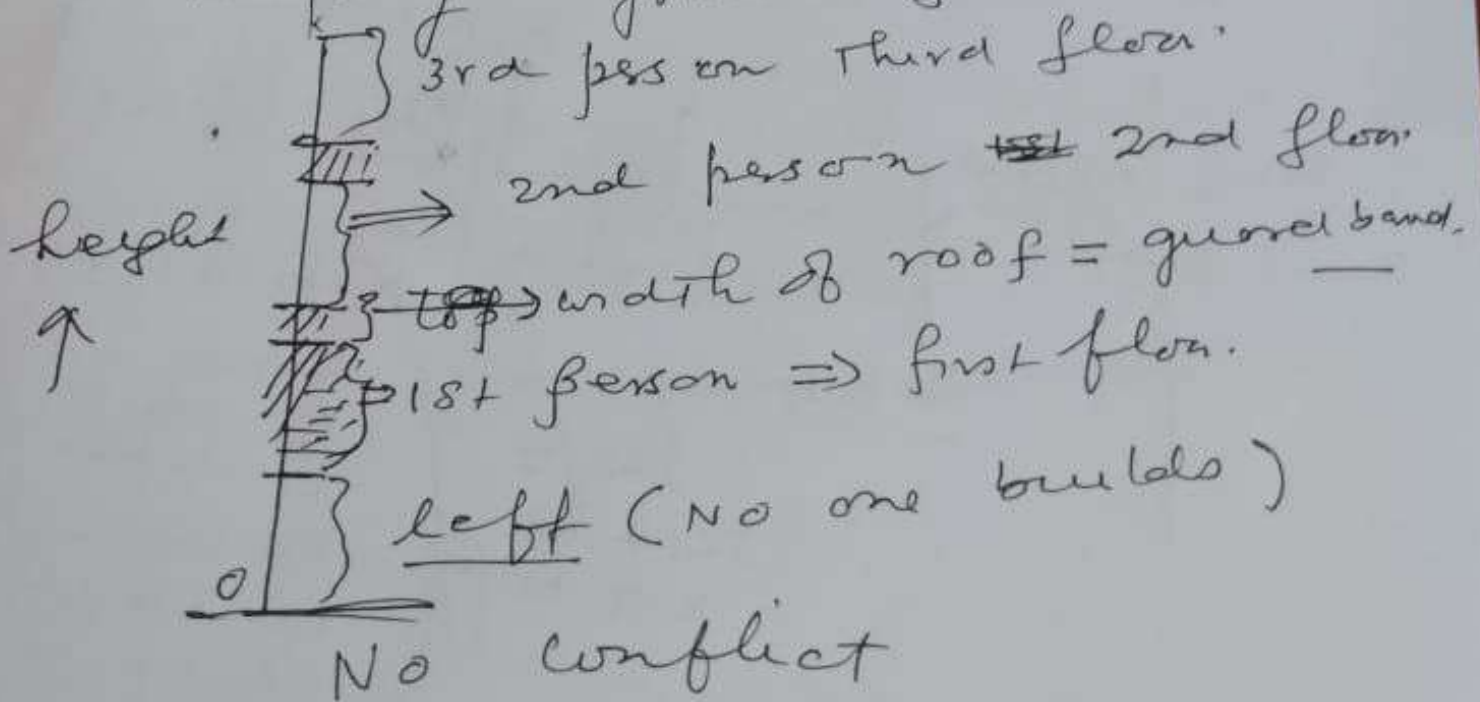 3rd person Third floor.
2nd person 2nd floor.
height
width of roof = guard band.
1st person => first floor.
left (No one builds)
0
No conflict